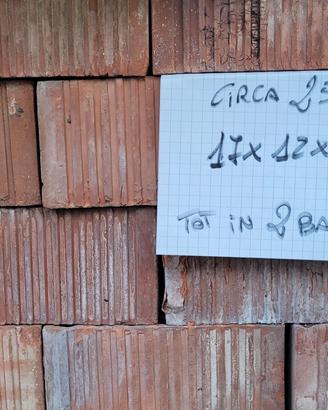 CIRCA 2
17x 12x
TOT IN 2 BA